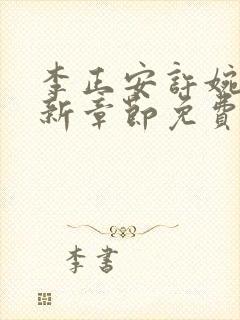 李正安許婉
新章節免費
李書